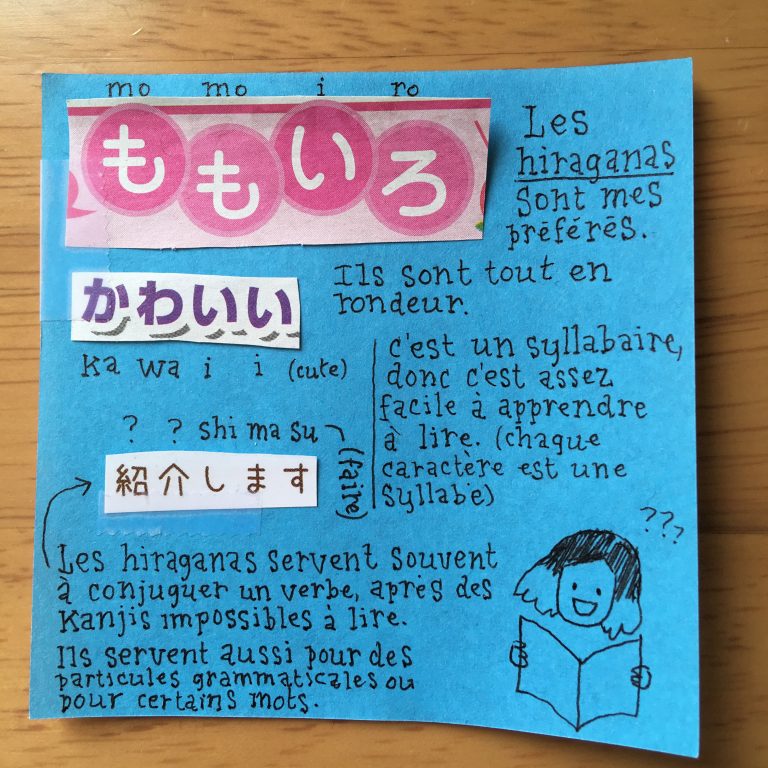 mo mo i ro
ももいろ
Les
hiraganas
sont mes
préférés.
Ils sont tout en
rondeur.
かわいい
ka wa i i (cute)
c'est un syllabaire,
donc c'est assez
facile à apprendre
à lire. (chaque
caractère est une
syllabe)
? ? shi ma su
(faire)
紹介します
Les hiraganas servent souvent
à conjuguer un verbe, après des
Kanjis impossibles à lire.
Ils servent aussi pour des
particules grammaticales ou
pour certains mots.
???